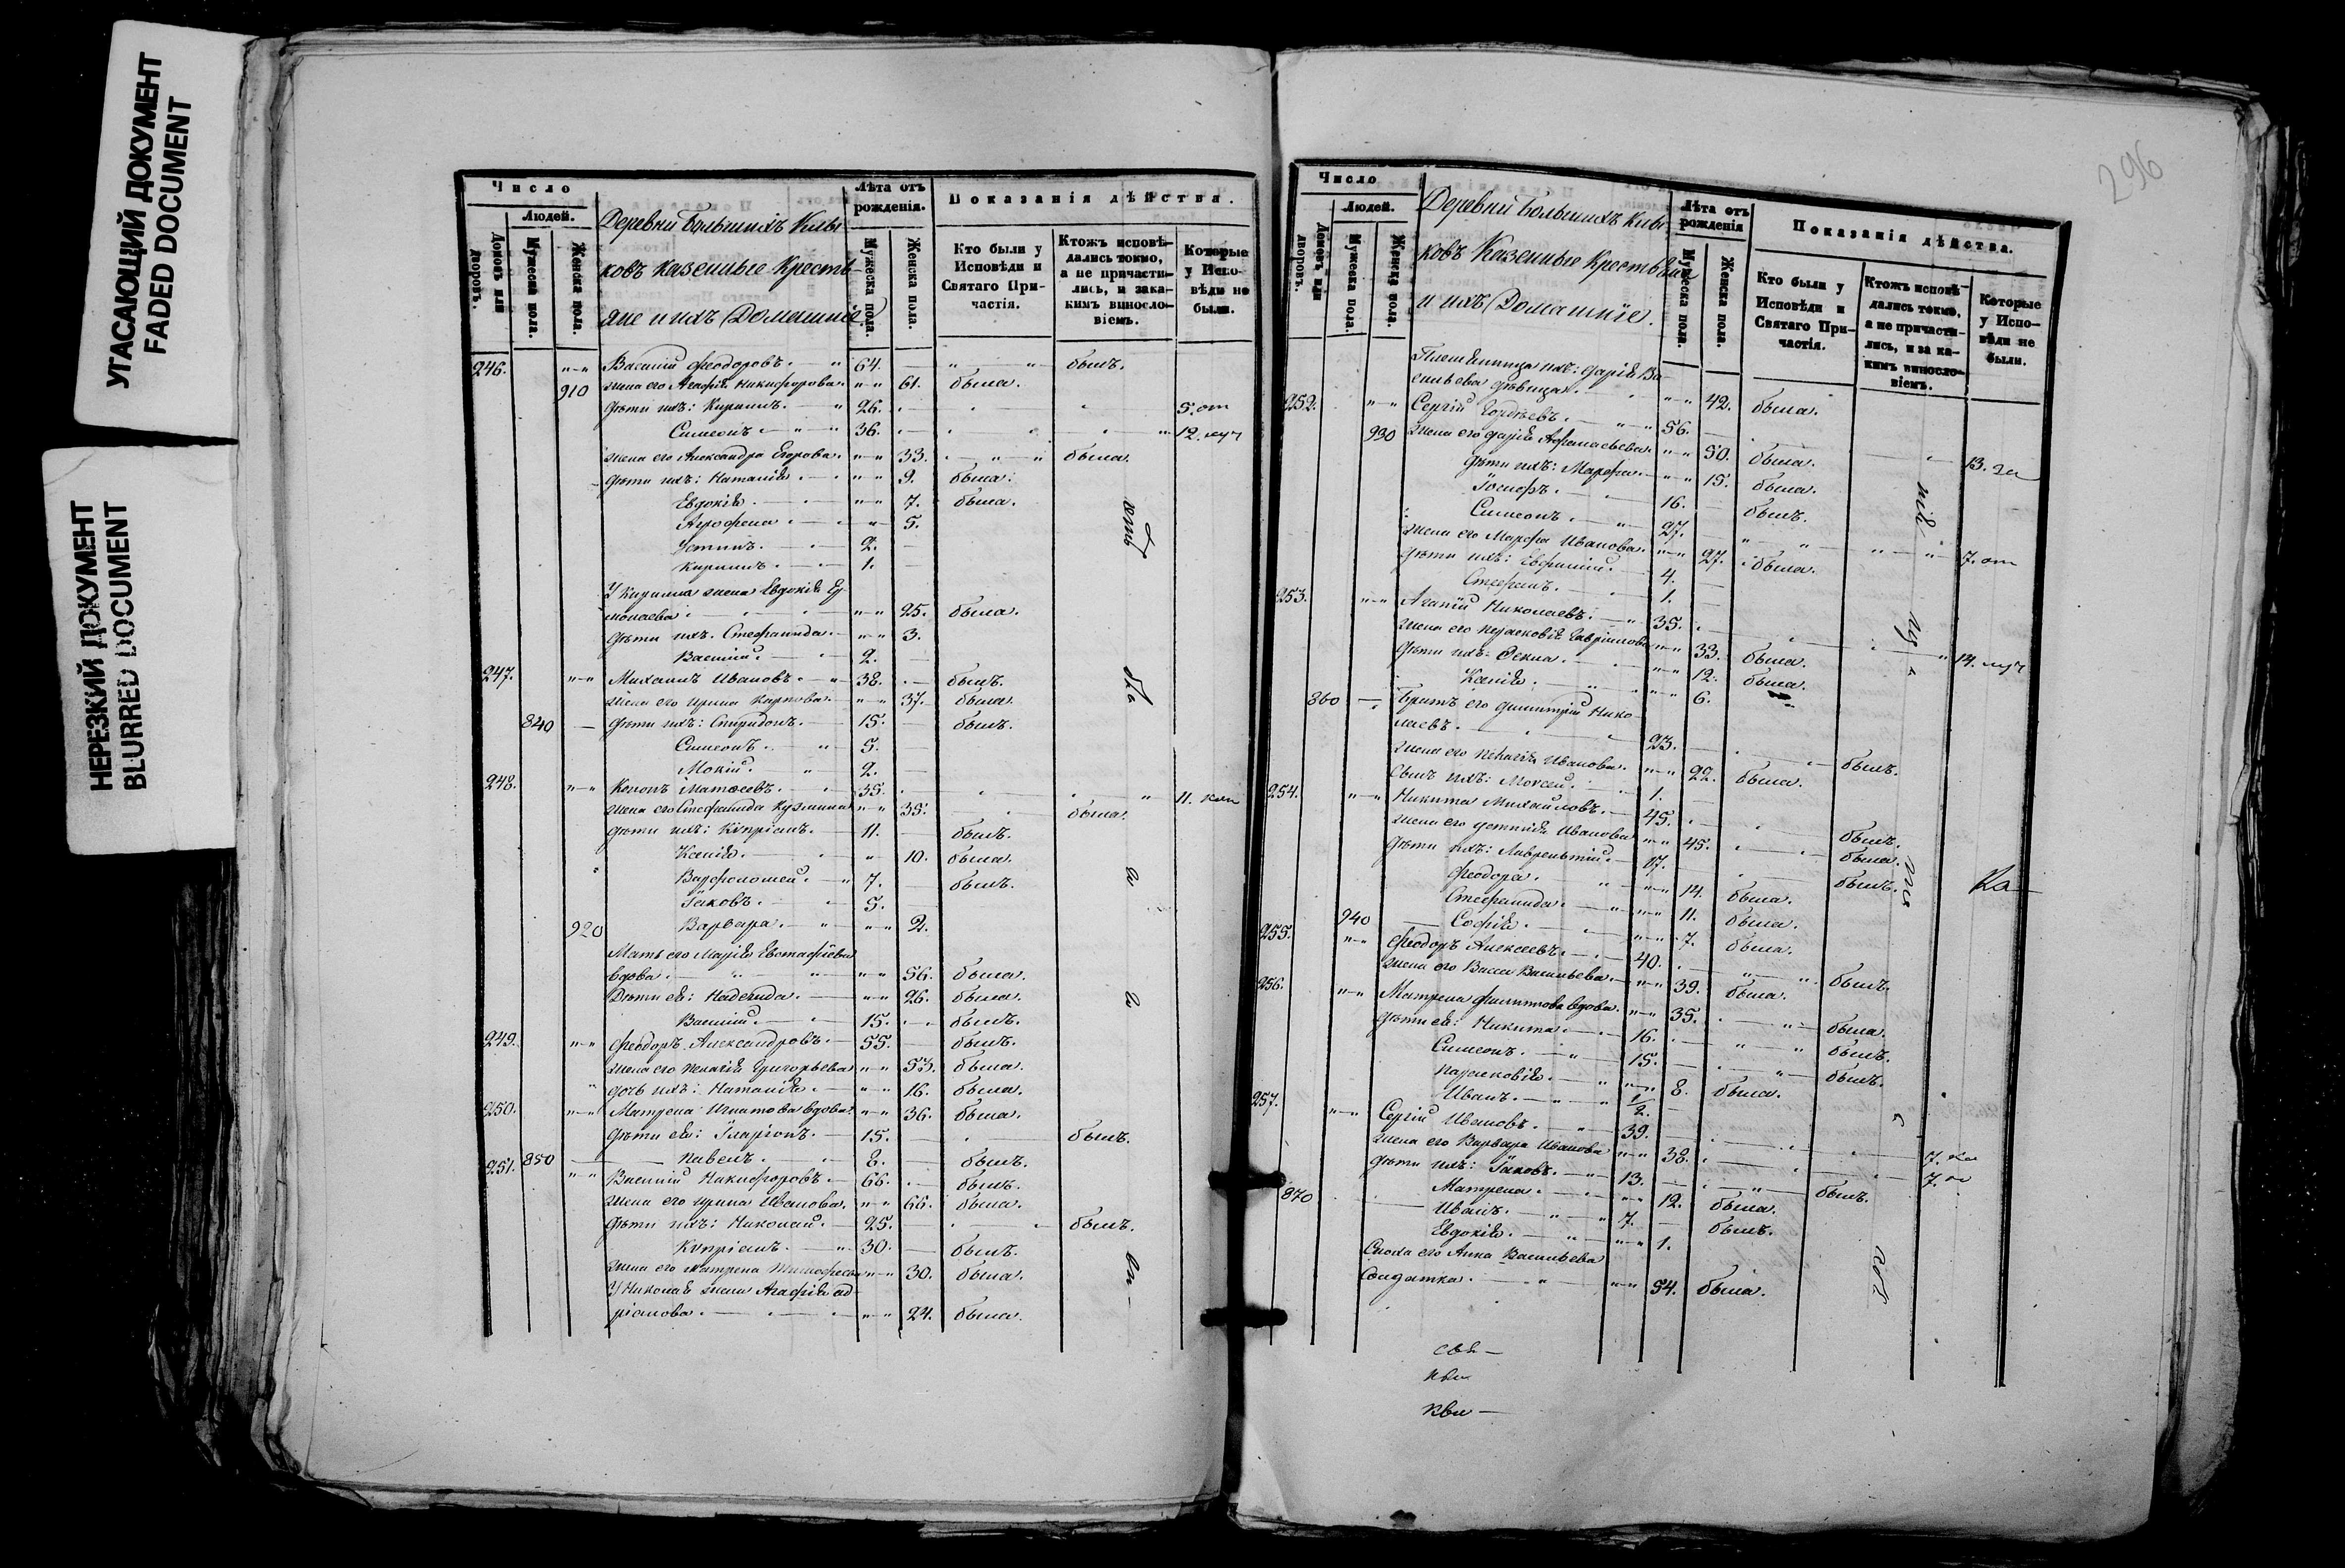 УГАСАЮЩИЙ ДОКУМЕНТ
FADED DOCUMENT
НЕРЕЗКИЙ ДОКУМЕНТ
BLURRED DOCUMENT
Число
Людей.
Домовъ или дворовъ.
Мужеска пола.
Женска пола.
Деревни Большихъ Клы-
ковъ Казенные Кресть-
яне и ихъ Домашніе
Лѣта отъ рожденія.
Мужеска пола.
Женска пола.
Показанія дѣйства.
Кто были у Исповѣди и Святаго При-частія.
Ктожъ исповѣ-дались токмо, а не причасти-лись, и зака-кимъ винословіемъ.
Которые у Испо-вѣди не были.
246. Василий Феодоровъ. 64. былъ.
910 жена его Агафія Никифорова 61. была.
дѣти ихъ: Кирилъ. 26. 5. от
Симеонъ 36. 12.
жена его Александра Егорова 33. была.
дѣти ихъ: Наталія 9. была.
Евдокія 7. была.
Агрофена 5.
Устинъ. 2.
Кирилъ. 1.
У Кирилла жена Евдокія Ер
молаева 25. была.
дѣти ихъ. Стефанида 3.
Василий. 2.
247. Михаилъ Ивановъ. 38. былъ.
жена его Ирина Карпова 37. была.
840 дѣти ихъ: Спиридонъ. 15. былъ.
Симеонъ. 5.
Мокій. 2.
248. Кононъ Матвеевъ. 35. 11.
жена его Стефанида Кузмина 35. была.
дѣти ихъ: Кѵпріанъ. 11. былъ.
Ксенія. 10. была.
Варфоломей. 7. былъ.
Іаковъ. 5.
920 Варвара. 2.
Мать его Марія Евстафіева
вдова. 56. была.
Дѣти ея: Надежда. 26. была.
Василий. 15. былъ.
249. Феодоръ Александровъ. 55. былъ.
жена его Пелагія Григорьева 53. была.
дочь ихъ: Наталія 16. была.
250. Матрена Игнатова вдова 36. была.
дѣти ея: Іларіонъ. 15. былъ.
850 Павелъ. 8. былъ.
251. Василий Никифоровъ. 66. былъ.
жена его Ирина Иванова. 66. была.
дѣти ихъ: Николай. 25. былъ.
Кѵпріанъ. 30. былъ.
жена его Матрена Тимофеева 30. была.
У Николая жена Агафія Ад
ріанова. 24. была.
296
Число
Людей.
Домовъ или дворовъ.
Мужеска пола.
Женска пола.
Деревни Большихъ Клы-
ковъ Казенные Крестьяне
и ихъ Домашніе.
Лѣта отъ рожденія
Мужеска пола.
Женска пола.
Показанія дѣйства.
Кто были у Исповѣди и Святаго При-частія.
Ктожъ исповѣ-дались токмо, а не причасти-лись, и за ка-кимъ винословіемъ.
Которые у Испо-вѣди не были.
Племянница ихъ: Дарія Ва-
сильева дѣвица. 42. была.
252. Сергій Гордѣевъ. 56. 13.
930 жена его Дарія Афанасьева 50. была.
дѣти ихъ: Марфа. 15. была.
Іосифъ. 16. былъ.
Симеонъ. 27. 7. от
жена его Марфа Иванова. 27. была.
дѣти ихъ: Евфимій. 4.
Стефанъ. 1.
253. Агапій Николаевъ. 35. 14.
жена его Парасковія Гаврилова 33. была.
дѣти ихъ: Фекла. 12. была.
Ксенія. 6.
860 Братъ его Димитрій Нико-
лаевъ. 23. былъ.
жена его Пелагія Иванова. 22. была.
сынъ ихъ: Моисей. 1.
254. Никита Михайловъ. 45. былъ.
жена его Устинія Иванова 45. была.
дѣти ихъ: Лаврентій. 17. былъ.
Феодора. 14. была.
Стефанида. 11. была.
940 Софія. 7. была.
255. Феодоръ Алексеевъ. 40. былъ.
жена его Васса Васильева 39. была.
256. Матрена Филиппова вдова. 35. была.
дѣти ея: Никита. 16. былъ.
Симеонъ. 15. былъ.
Парасковія. 8. была.
Иванъ. 1/2.
257. Сергій Ивановъ. 39. 7.
жена его Варвара Иванова 38. 7.
дѣти ихъ: Іаковъ. 13. былъ.
Матрена. 12. была.
870 Иванъ. 7. былъ.
Евдокія. 1.
Сноха его Анна Васильева
Солдатка. 54. была.